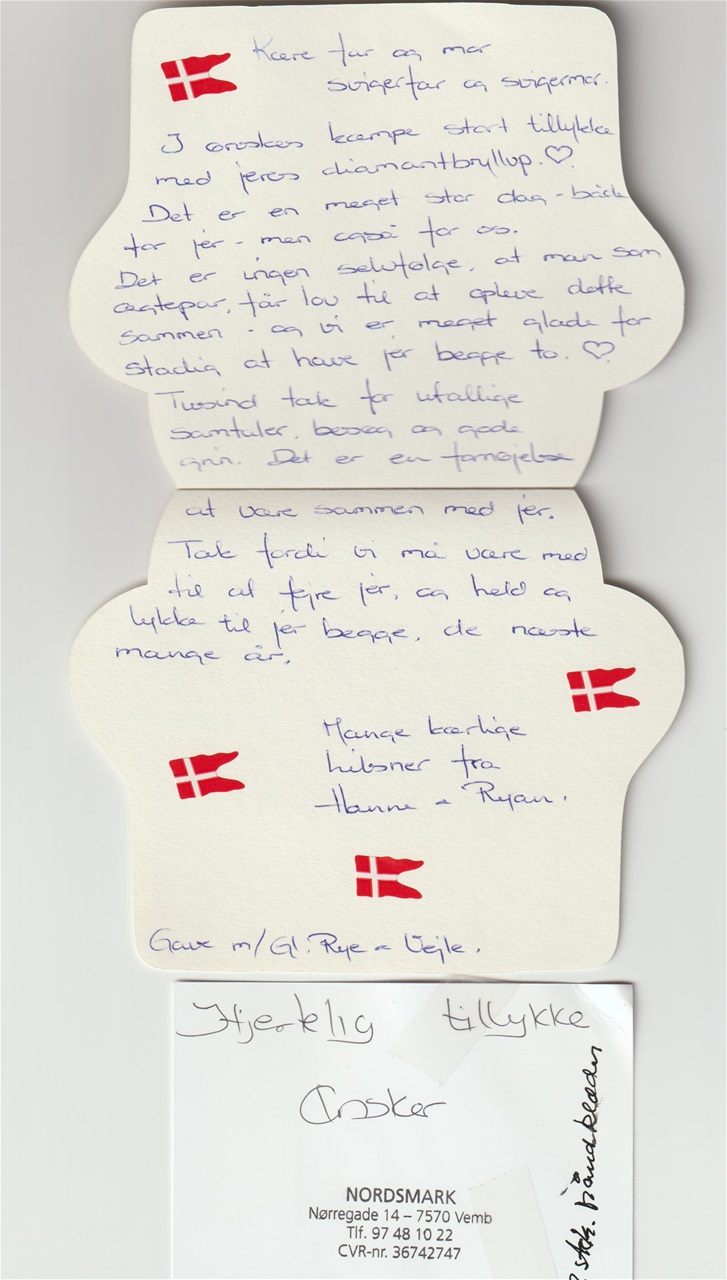 Kære far og mor
svigerfar og svigermor.
I ønskes kæmpe stort tillykke
med jeres diamantbryllup. ♡
Det er en meget stor dag - både
for jer - men også for os.
Det er ingen selvfølge, at man som
ægtepar, får lov til at opleve dette
sammen - og vi er meget glade for
stadig at have jer begge to. ♡
Tusind tak for utallige
samtaler, besøg og gode
grin. Det er en fornøjelse
at være sammen med jer.
Tak fordi vi må være med
til at fejre jer, og held og
lykke til jer begge, de næste
mange år.
Mange kærlige
hilsner fra
Hanne & Ryan.
Gave m/ Gl. Rye & Vejle.
Hjerklig tillykke
Ønsker
NORDSMARK
Nørregade 14 – 7570 Vemb
Tlf. 97 48 10 22
CVR-nr. 36742747
stk. håndklæder